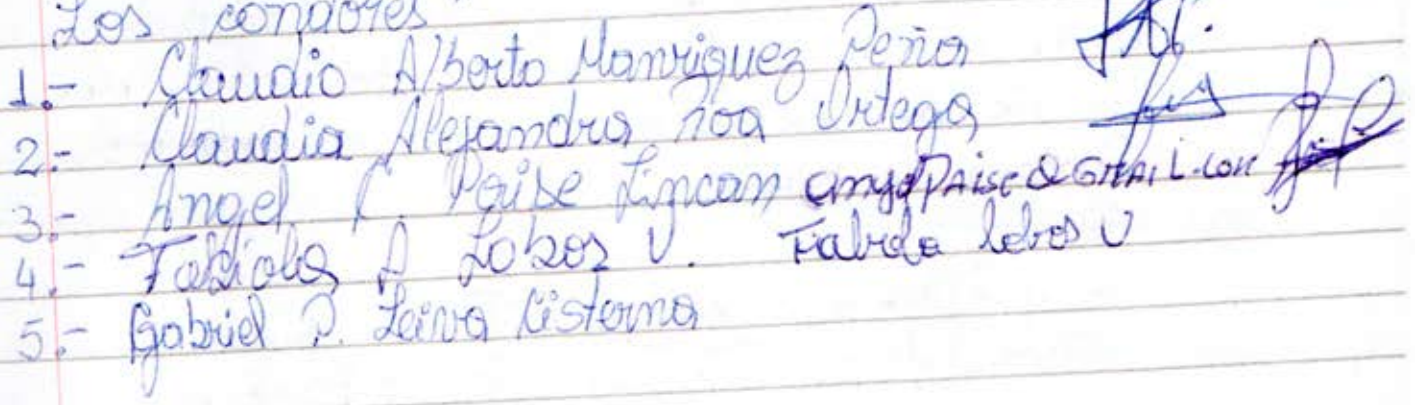 Los condores
1.- Claudio Alberto Manriquez Peña
2.- Claudia Alejandra Roa Ortega
3.- Angel C. Paise Lincan angelpaise@GMAIL.COM
4.- Fabiola D Lobos V. Fabiola lobos V
5.- Gabriel D. Leiva Cisterna